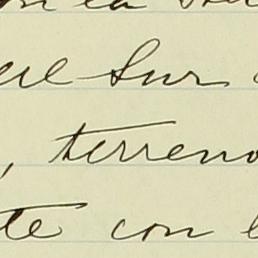 en la
del Sur
, terreno
te con l